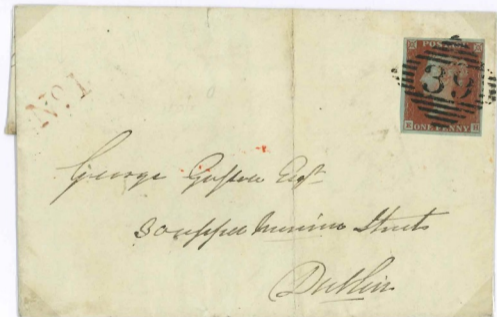 No. 1
POSTAGE
39
ONE PENNY
George Esqr
30 Upper Street
Dublin